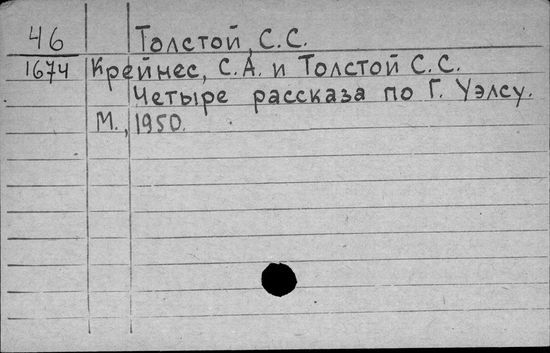 46 Толстой, С.С.
1674 Крейнес, С.А. и Толстой С.С.
Четыре рассказа по Г. Уэлсу.
М., 1950.